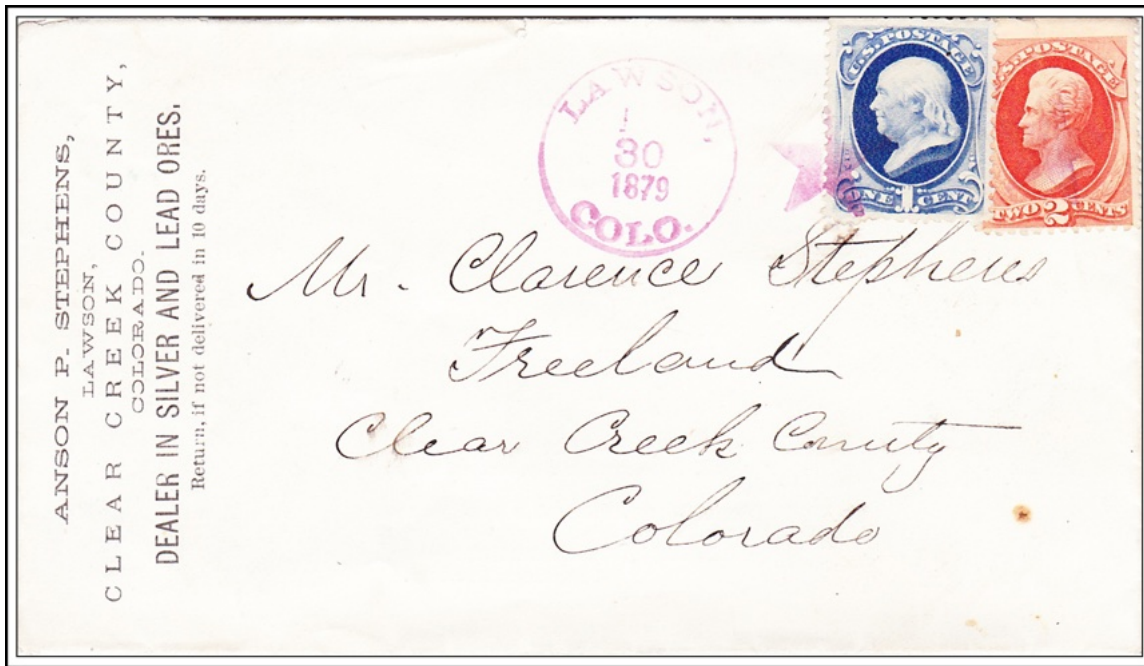 ANSON P. STEPHENS,
LAWSON,
CLEAR CREEK COUNTY,
COLORADO.
DEALER IN SILVER AND LEAD ORES.
Return, if not delivered in 10 days.
LAWSON,
30
1879
COLO.
U.S. POSTAGE
ONE 1 CENT
U.S. POSTAGE
TWO 2 CENTS
Mr. Clarence Stephens
Freeland
Clear Creek County
Colorado